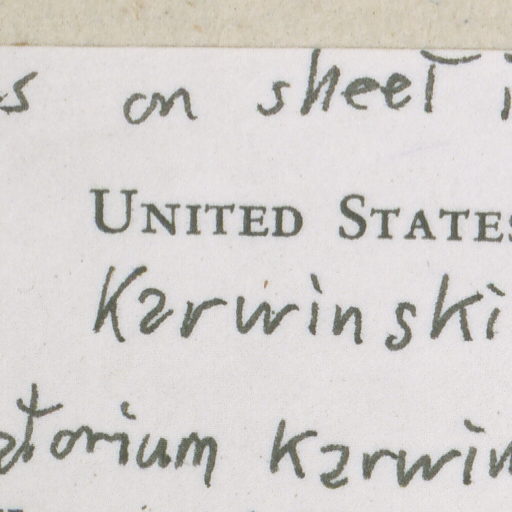 on sheet
UNITED STATES
Karwinski
atorium Karwin